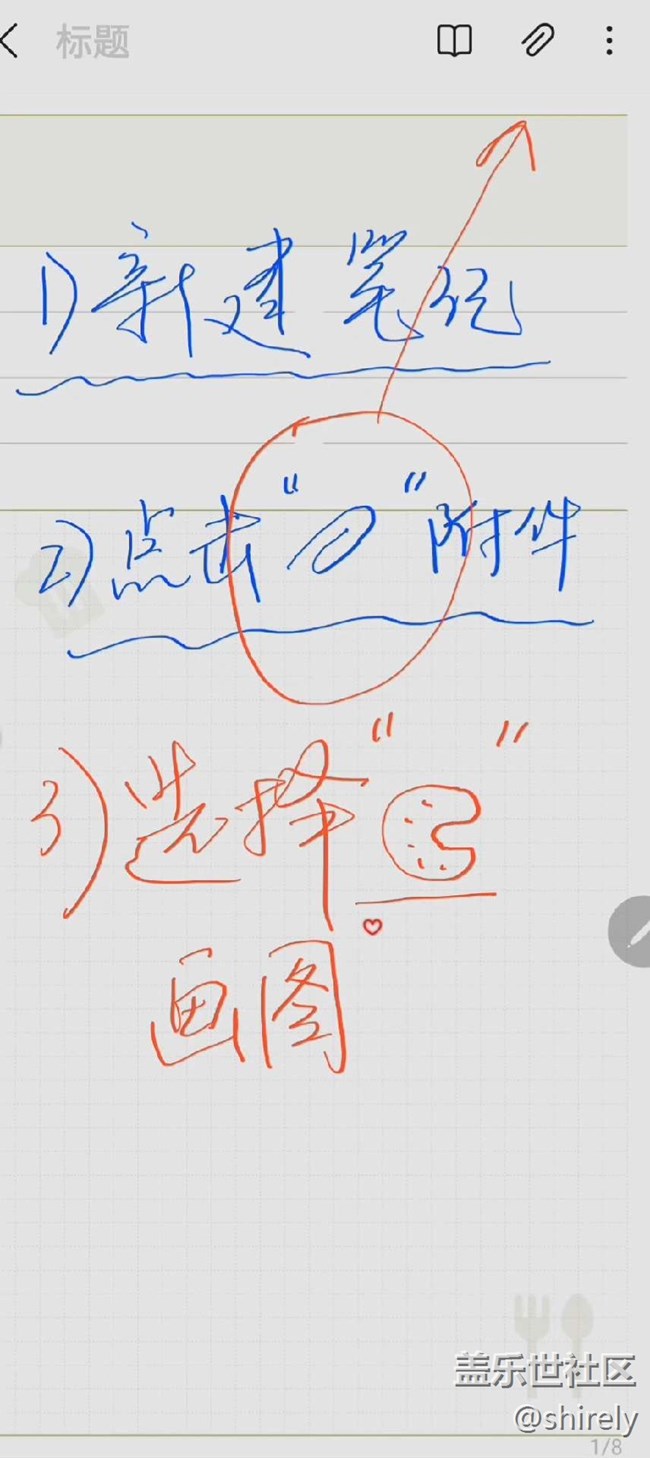 标题
1) 新建笔记
2) 点击 " " 附件
3) 选择 " "
画图
盖乐世社区
@shirely
1/8